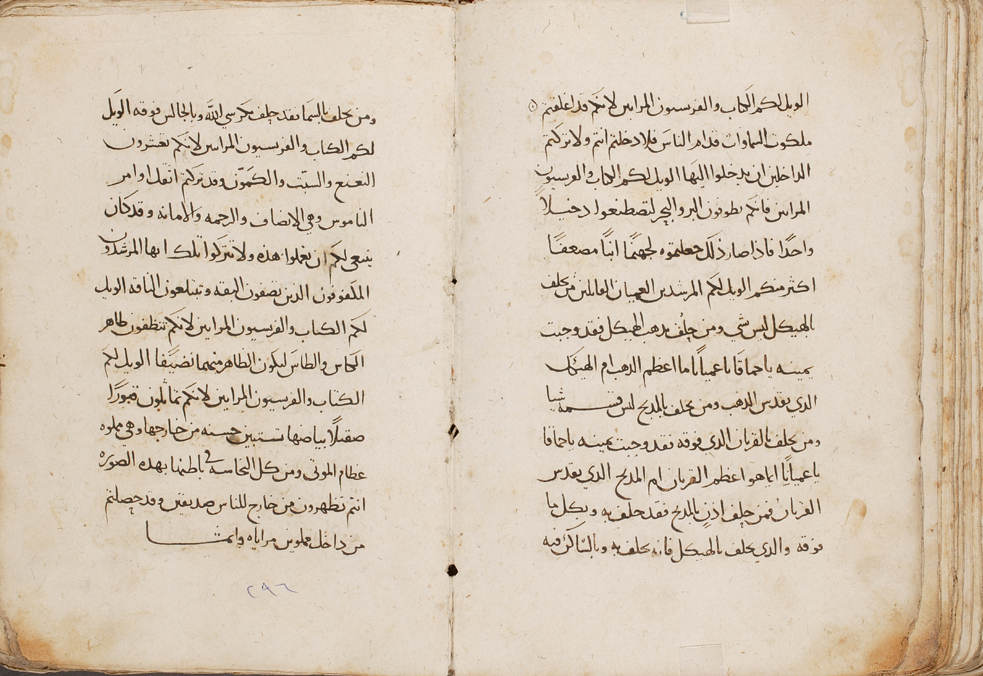 الويل لكم الكتاب والفريسيون المرايين لانكم قد اغلقتم
ملكوت السماوات قدام الناس فلا دخلتم انتم ولا تركتم
الداخلين ان يدخلوا اليها الويل لكم الكتاب والفريسيون
المرايين فانكم تطوفون البر والبحر لتصطنعوا دخيلاً
واحدًا فاذا صار ذلك جعلتموه لجهنما ابنًا مضعفًا
اكثر منكم الويل لكم المرشدين العميان القايلين من حلف
بالهيكل ليس شي ومن حلف بدهب الهيكل فقد وجبت
يمينه ياحماقا ياعميانًا ما اعظم الدهب ام الهيكل
الدي يقدس الدهب ومن يحلف بالمدبح ليس قسمه شيا
ومن يحلف بالقربان الدي فوقه فقد وجبت يمينه ياحماقا
ياعميانًا ايما هو اعظم القربان ام المدبح الدي يقدس
القربان فمن حلف ادن بالمدبح فقد حلف به وبكل ما
فوقه والدي يحلف بالهيكل فانه يحلف به وبالساكن فيه
ومن يحلف بالسما فقد حلف بكرسي الله وبالجالس فوقه الويل
لكم الكتاب والفريسيون المرايين لانكم تعشرون
النعنع والسبت والكمون وقد تركتم اثقل اوامر
الناموس وهي الانصاف والرحمه والامانه وقد كان
ينبغي لكم ان تعملوا هذه ولا تتركوا تلك ايها المرشدون
المكفوفون الدين يصفون البقه ويبتلعون الناقه الويل
لكم الكتاب والفريسيون المرايين لانكم تنظفون ظاهر
الكاس والطاس ليكون الظاهر منهما نضيفًا الويل لكم
الكتاب والفريسيون المرايين لانكم تماثلون قبورًا
صقيلاً بياضها تستبين حسنه من خارجها وهي مملوه
عظام الموتى ومن كل النجاسه في باطنها بهده الصوره
انتم تظهرون من خارج للناس صديقين وقد حصلتم
من داخل مملوين مراياه واثمًا
٢٩٦